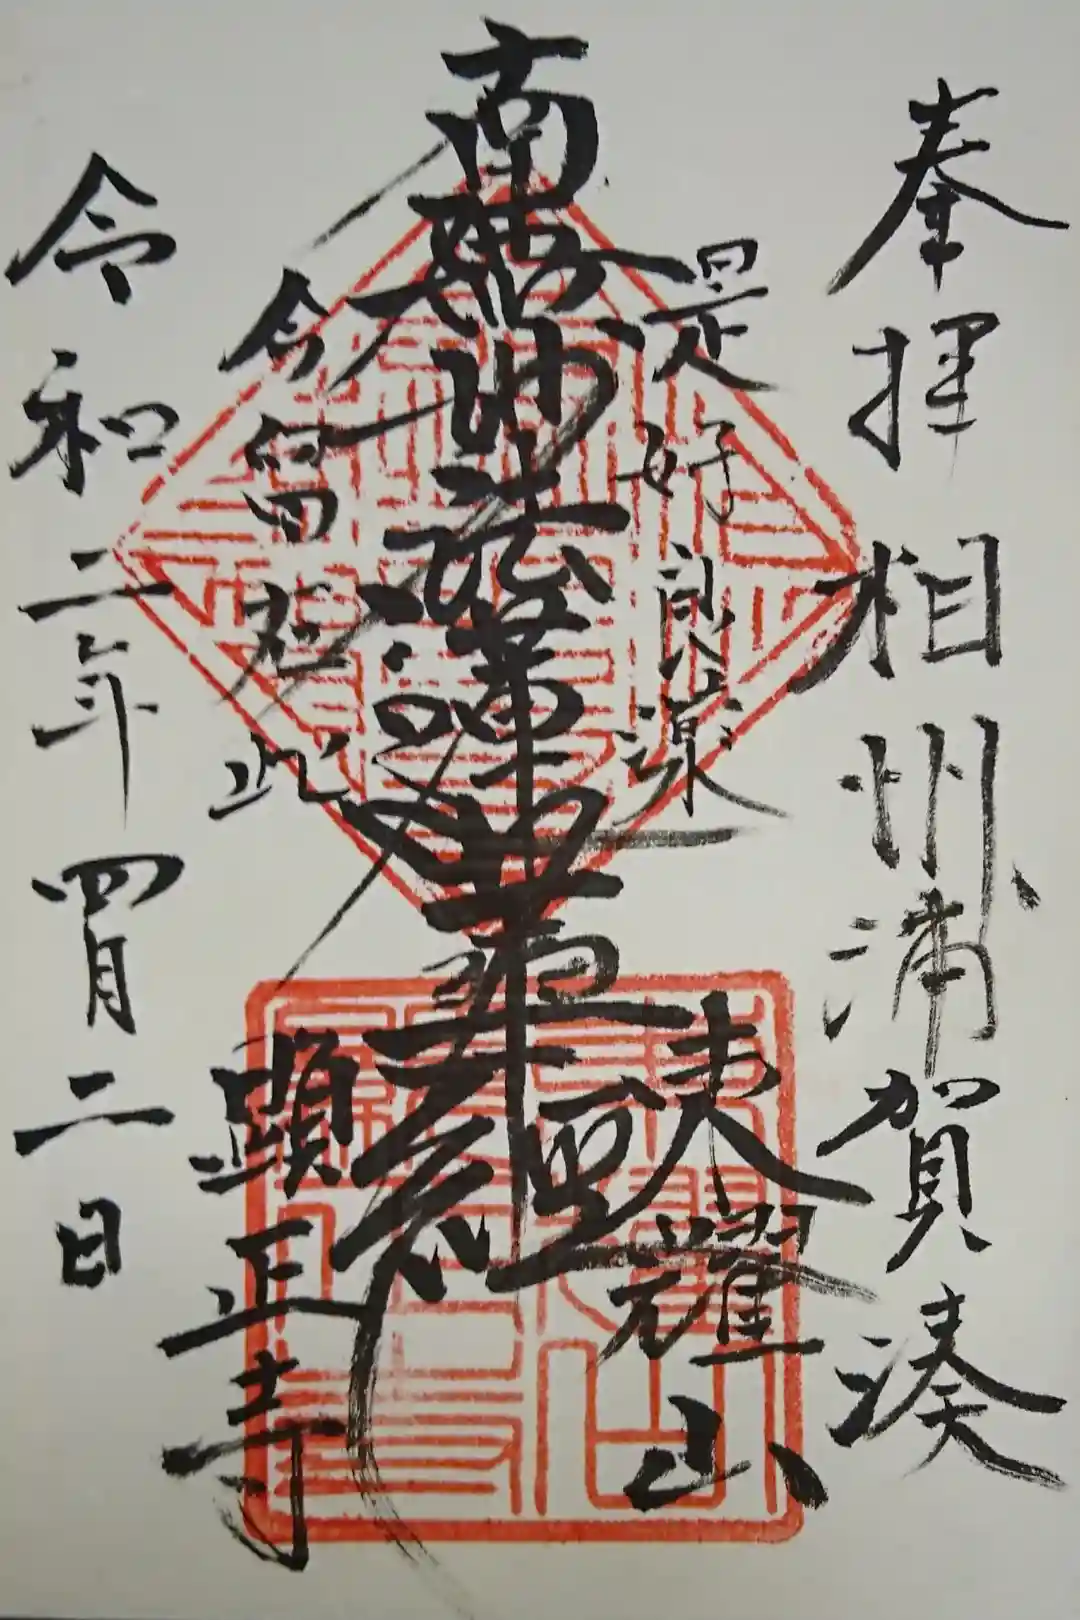 奉拝 相州浦賀湊
是好良薬
東耀山
南無妙法蓮華経
今留在此
顕正寺
令和二年四月二日